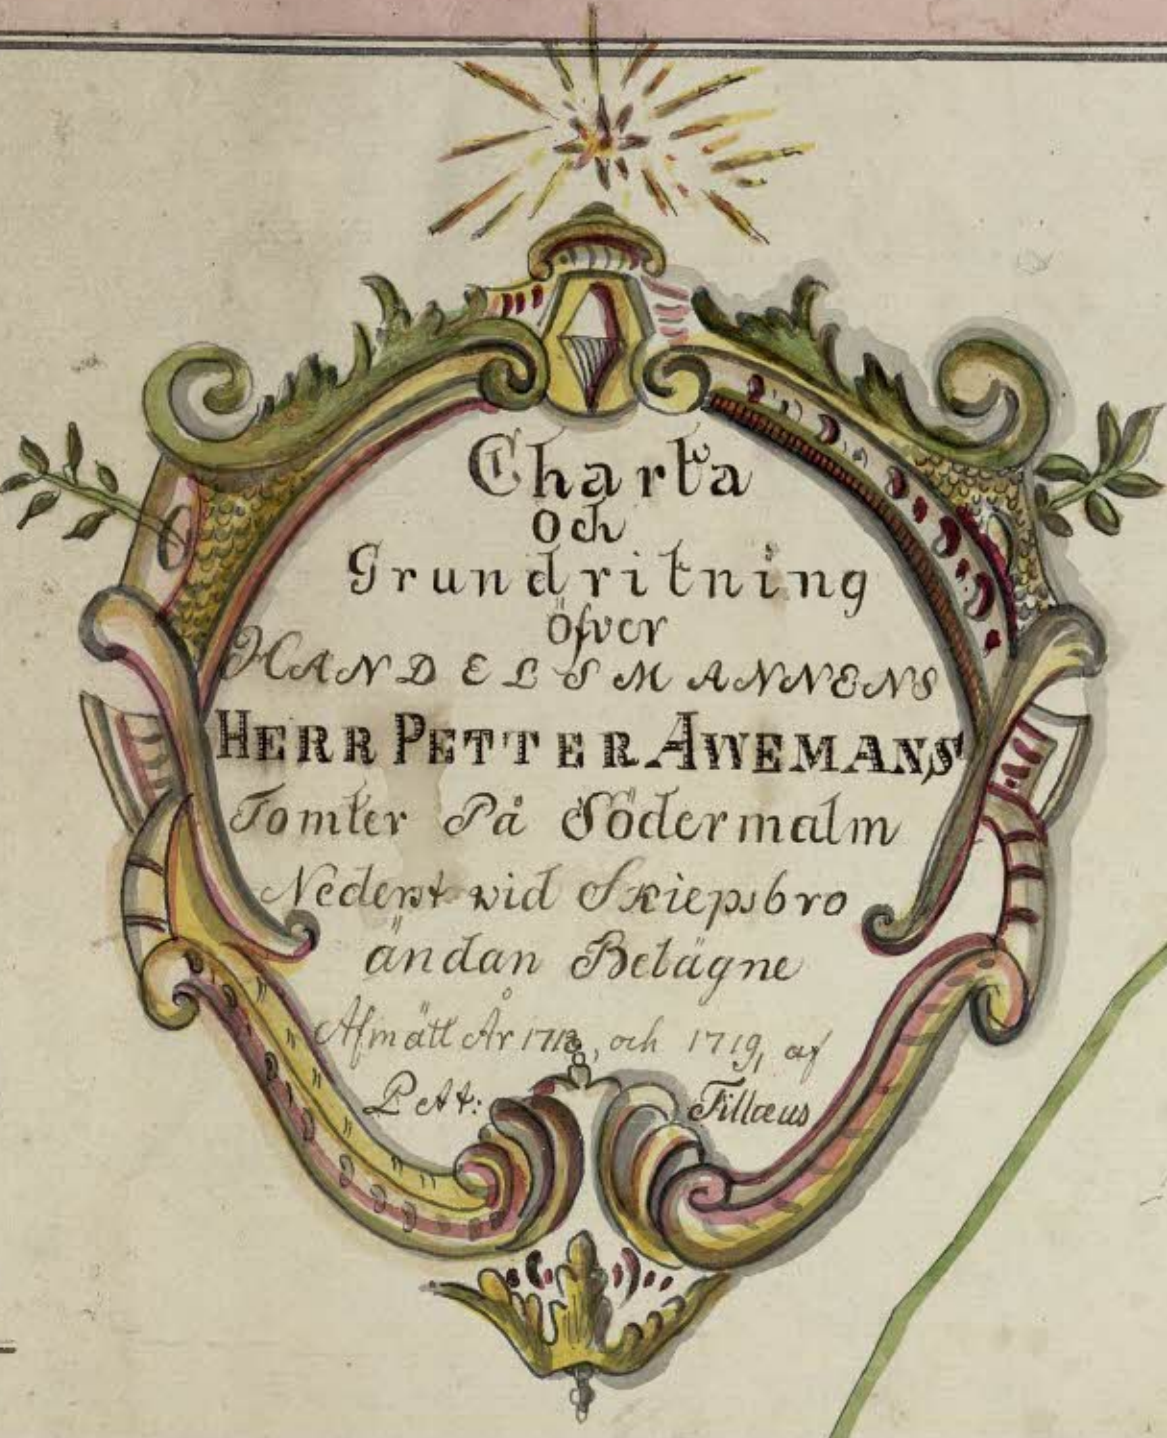 Charta
och
Grundritning
öfver
HANDELSMANNENS
HERR PETTER AWEMANS
Tomter På Södermalm
Nederst wid Skiepsbro
ändan Belägne
Afmätt År och 1719, af
Pett: Tillæus